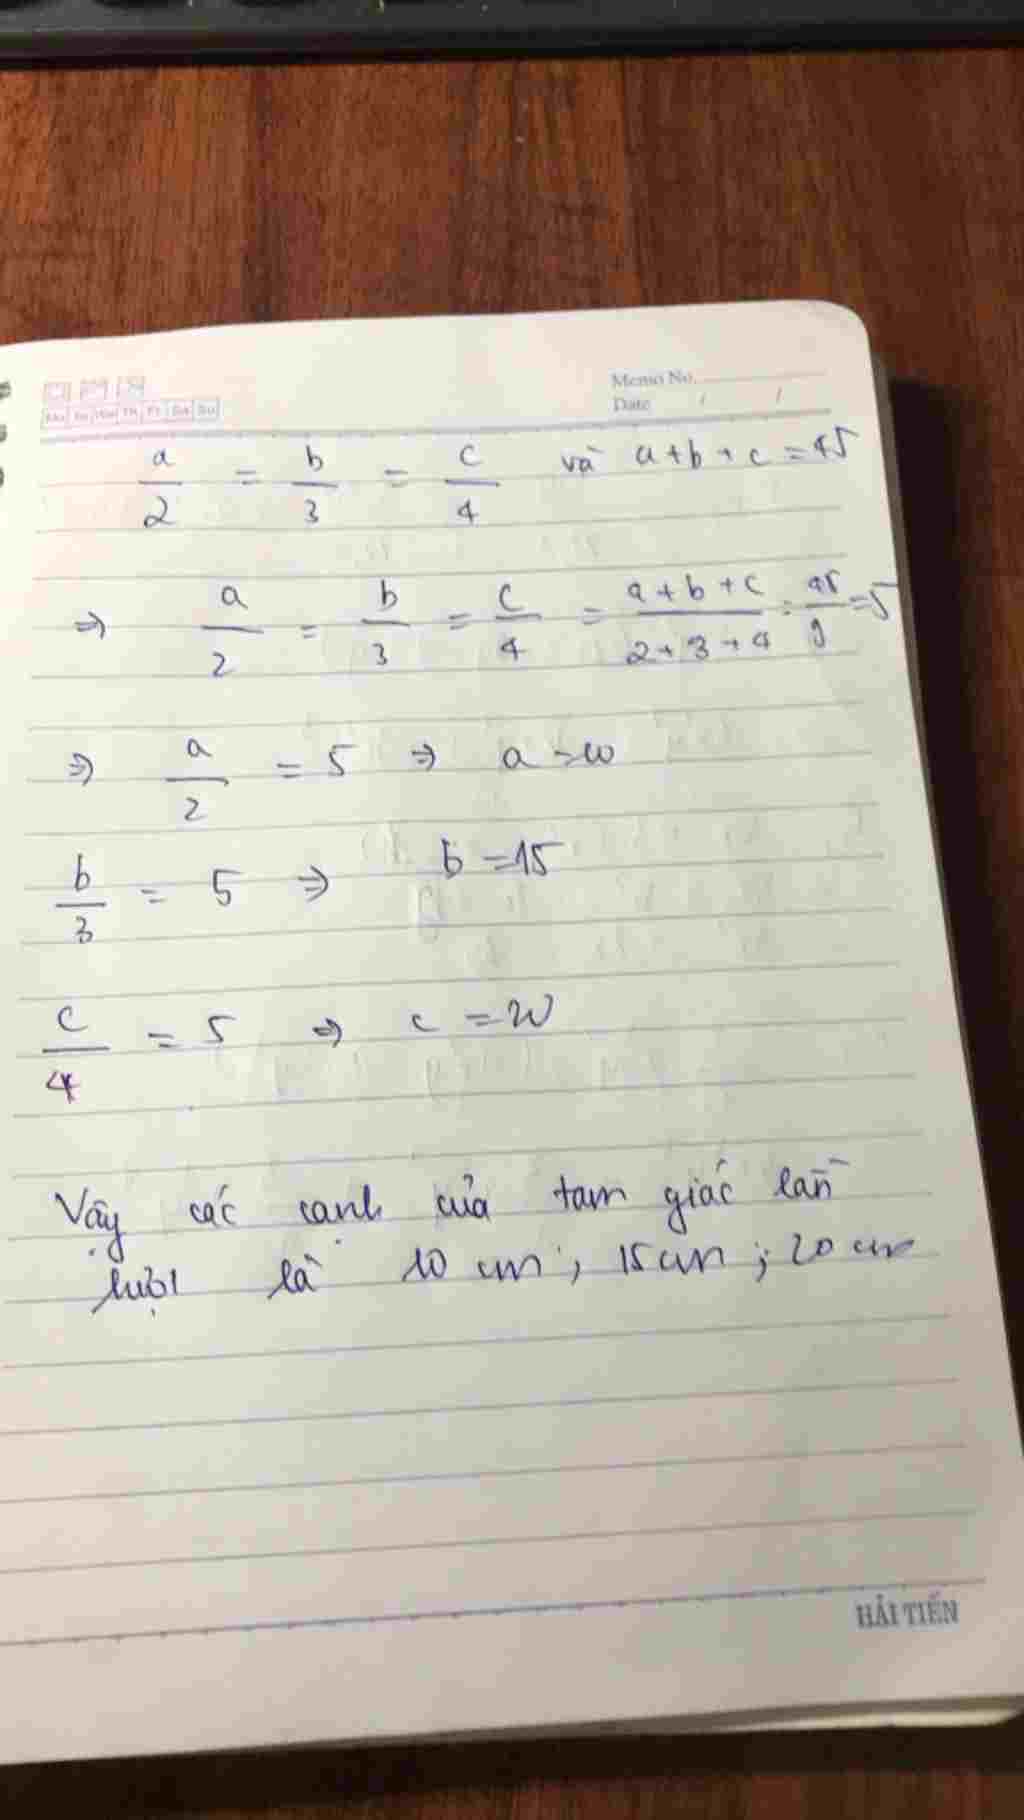 Memo No.
Date / /
Mo Tu We Th Fr Sa Su
a/2 = b/3 = c/4 và a+b+c = 45
⇒ a/2 = b/3 = c/4 = (a+b+c)/(2+3+4) = 45/9 = 5
⇒ a/2 = 5 ⇒ a = 10
b/3 = 5 ⇒ b = 15
c/4 = 5 ⇒ c = 20
Vậy các cạnh của tam giác lần
lượt là 10 cm ; 15cm ; 20 cm
HẢI TIẾN